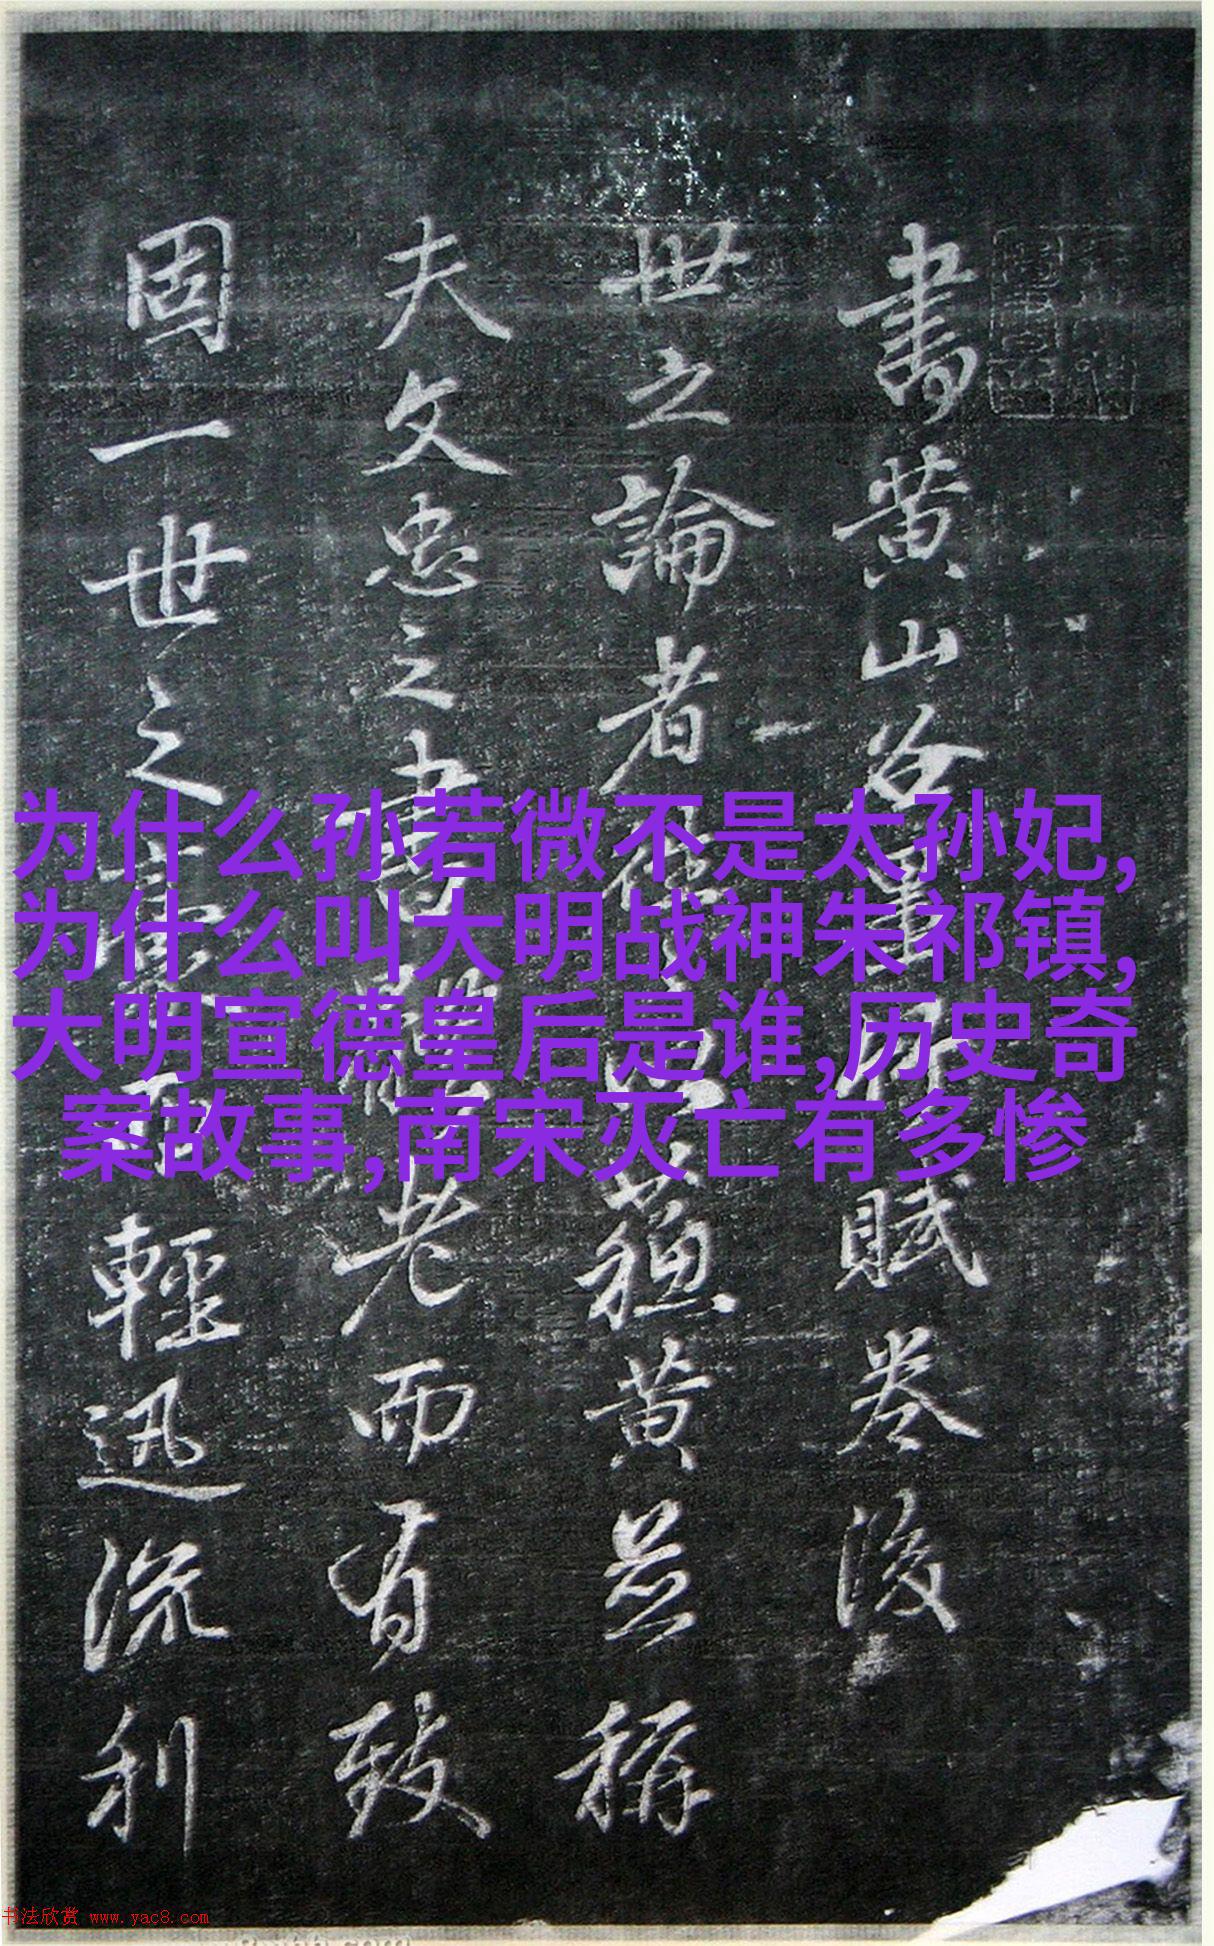 書黄山谷墨竹賦卷後
世之論者以蘇黄並稱
夫文忠之書老而有致
固一世之豪而輕迅流利
为什么孙若微不是太孙妃,
为什么叫大明战神朱祁镇,
大明宣德皇后是谁,历史奇
案故事,南宋灭亡有多惨
书法欣赏 www.yac8.com